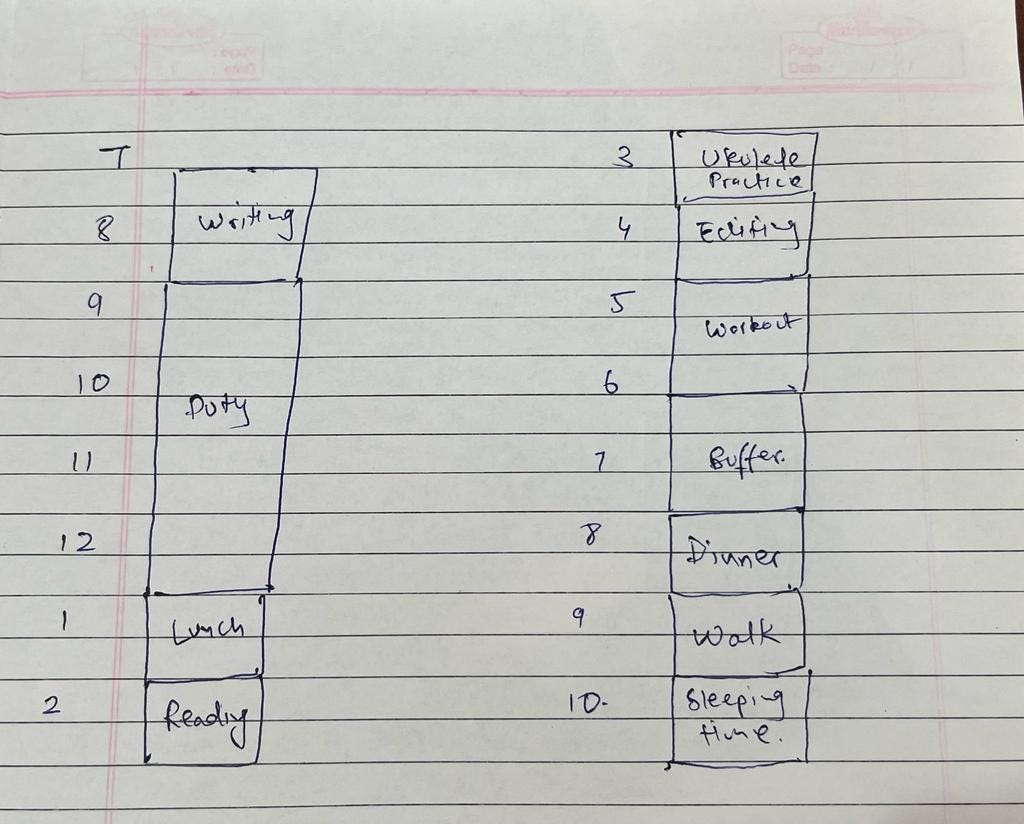 7
Writing
8
9
10
Duty
11
12
1
Lunch
2
Reading
3
Ukulele
Practice
4
Editing
5
Workout
6
7
Buffer.
8
Dinner
9
Walk
10.
Sleeping
time.
Page
Date